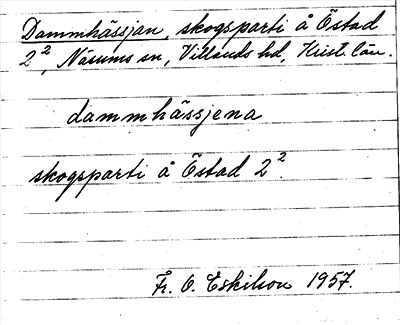 Dammhässjan, skogsparti å Östad
2², Näsums sn, Villands hd, Krist. län.
dammhässjena
skogsparti å Östad 2².
Fr. O. Eskilson 1957.